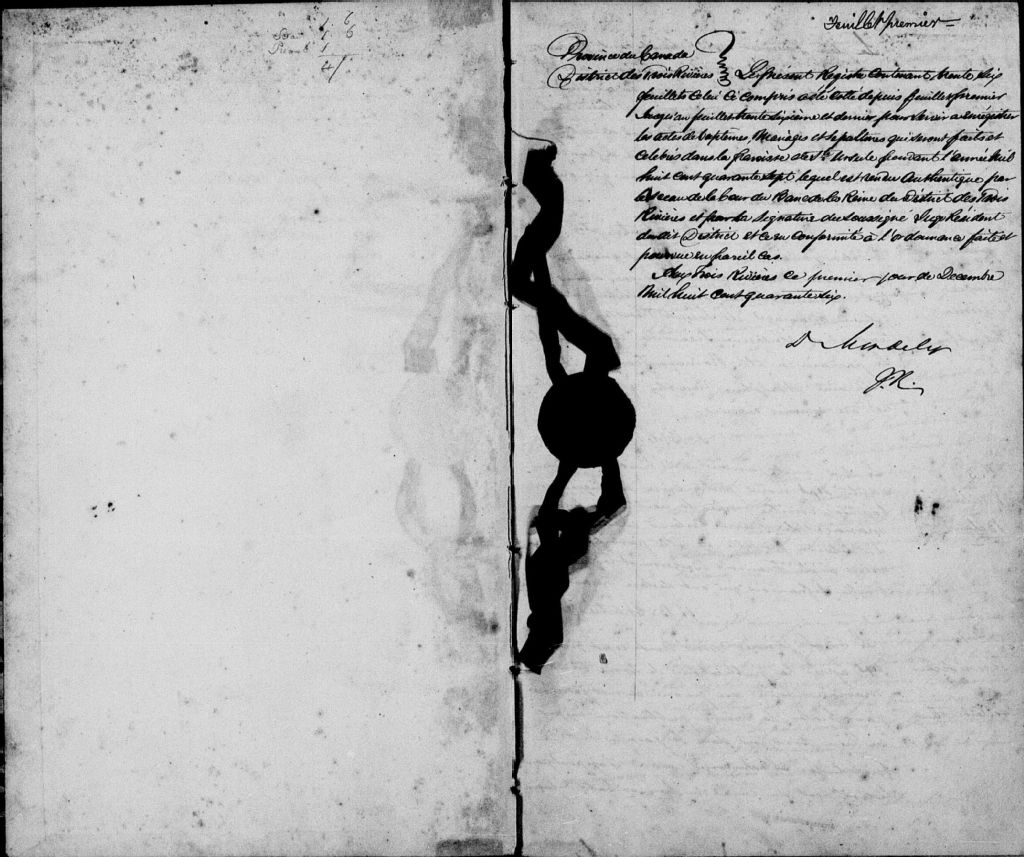 6
1 6
1
4
Feuillet premier
Province du Canada
District des Trois Rivières } Le présent Registre contenant trente six
feuillets celui ci compris a été coté depuis feuillet premier
jusqu'au feuillet trente sixième et dernier pour servir a enrégistrer
les actes de Baptêmes, Mariages et Sepultures qui seront faits et
célébrés dans la Paroisse de Ste Ursule pendant l'année mil
huit cent quarante sept lequel est rendu authentique par
le sceau de la Cour du Banc de la Reine du District des Trois
Rivières et par la signature du soussigné Juge Résident
du dit District et ce en conformité à l'ordonnance faite et
pourvue en pareil cas.
Aux Trois Rivières ce premier jour de Decembre
Mil huit cent quarante six.
D. Mondelet
J.R.